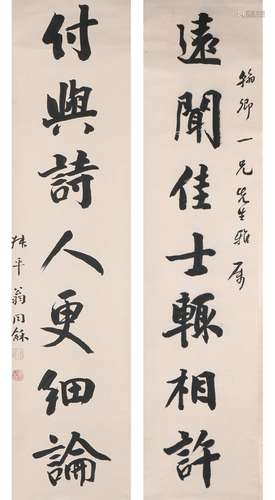 翰卿一兄先生雅属
遠聞佳士輒相許
付與詩人更細論
叔平翁同龢